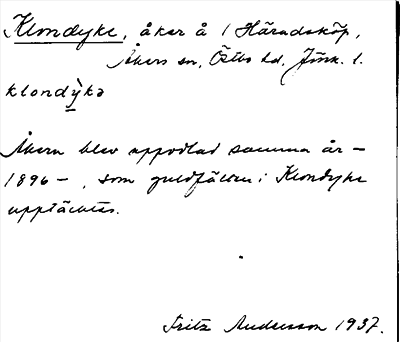 Klondyke, åker å 1 Häradsköp,
Åkers sn, Östbo hd, Jönk. l.
klondỳkə
Åkern blev uppodlad samma år –
1896 – , som guldfälten i Klondyke
upptäcktes.
Fritz Andersson 1937.